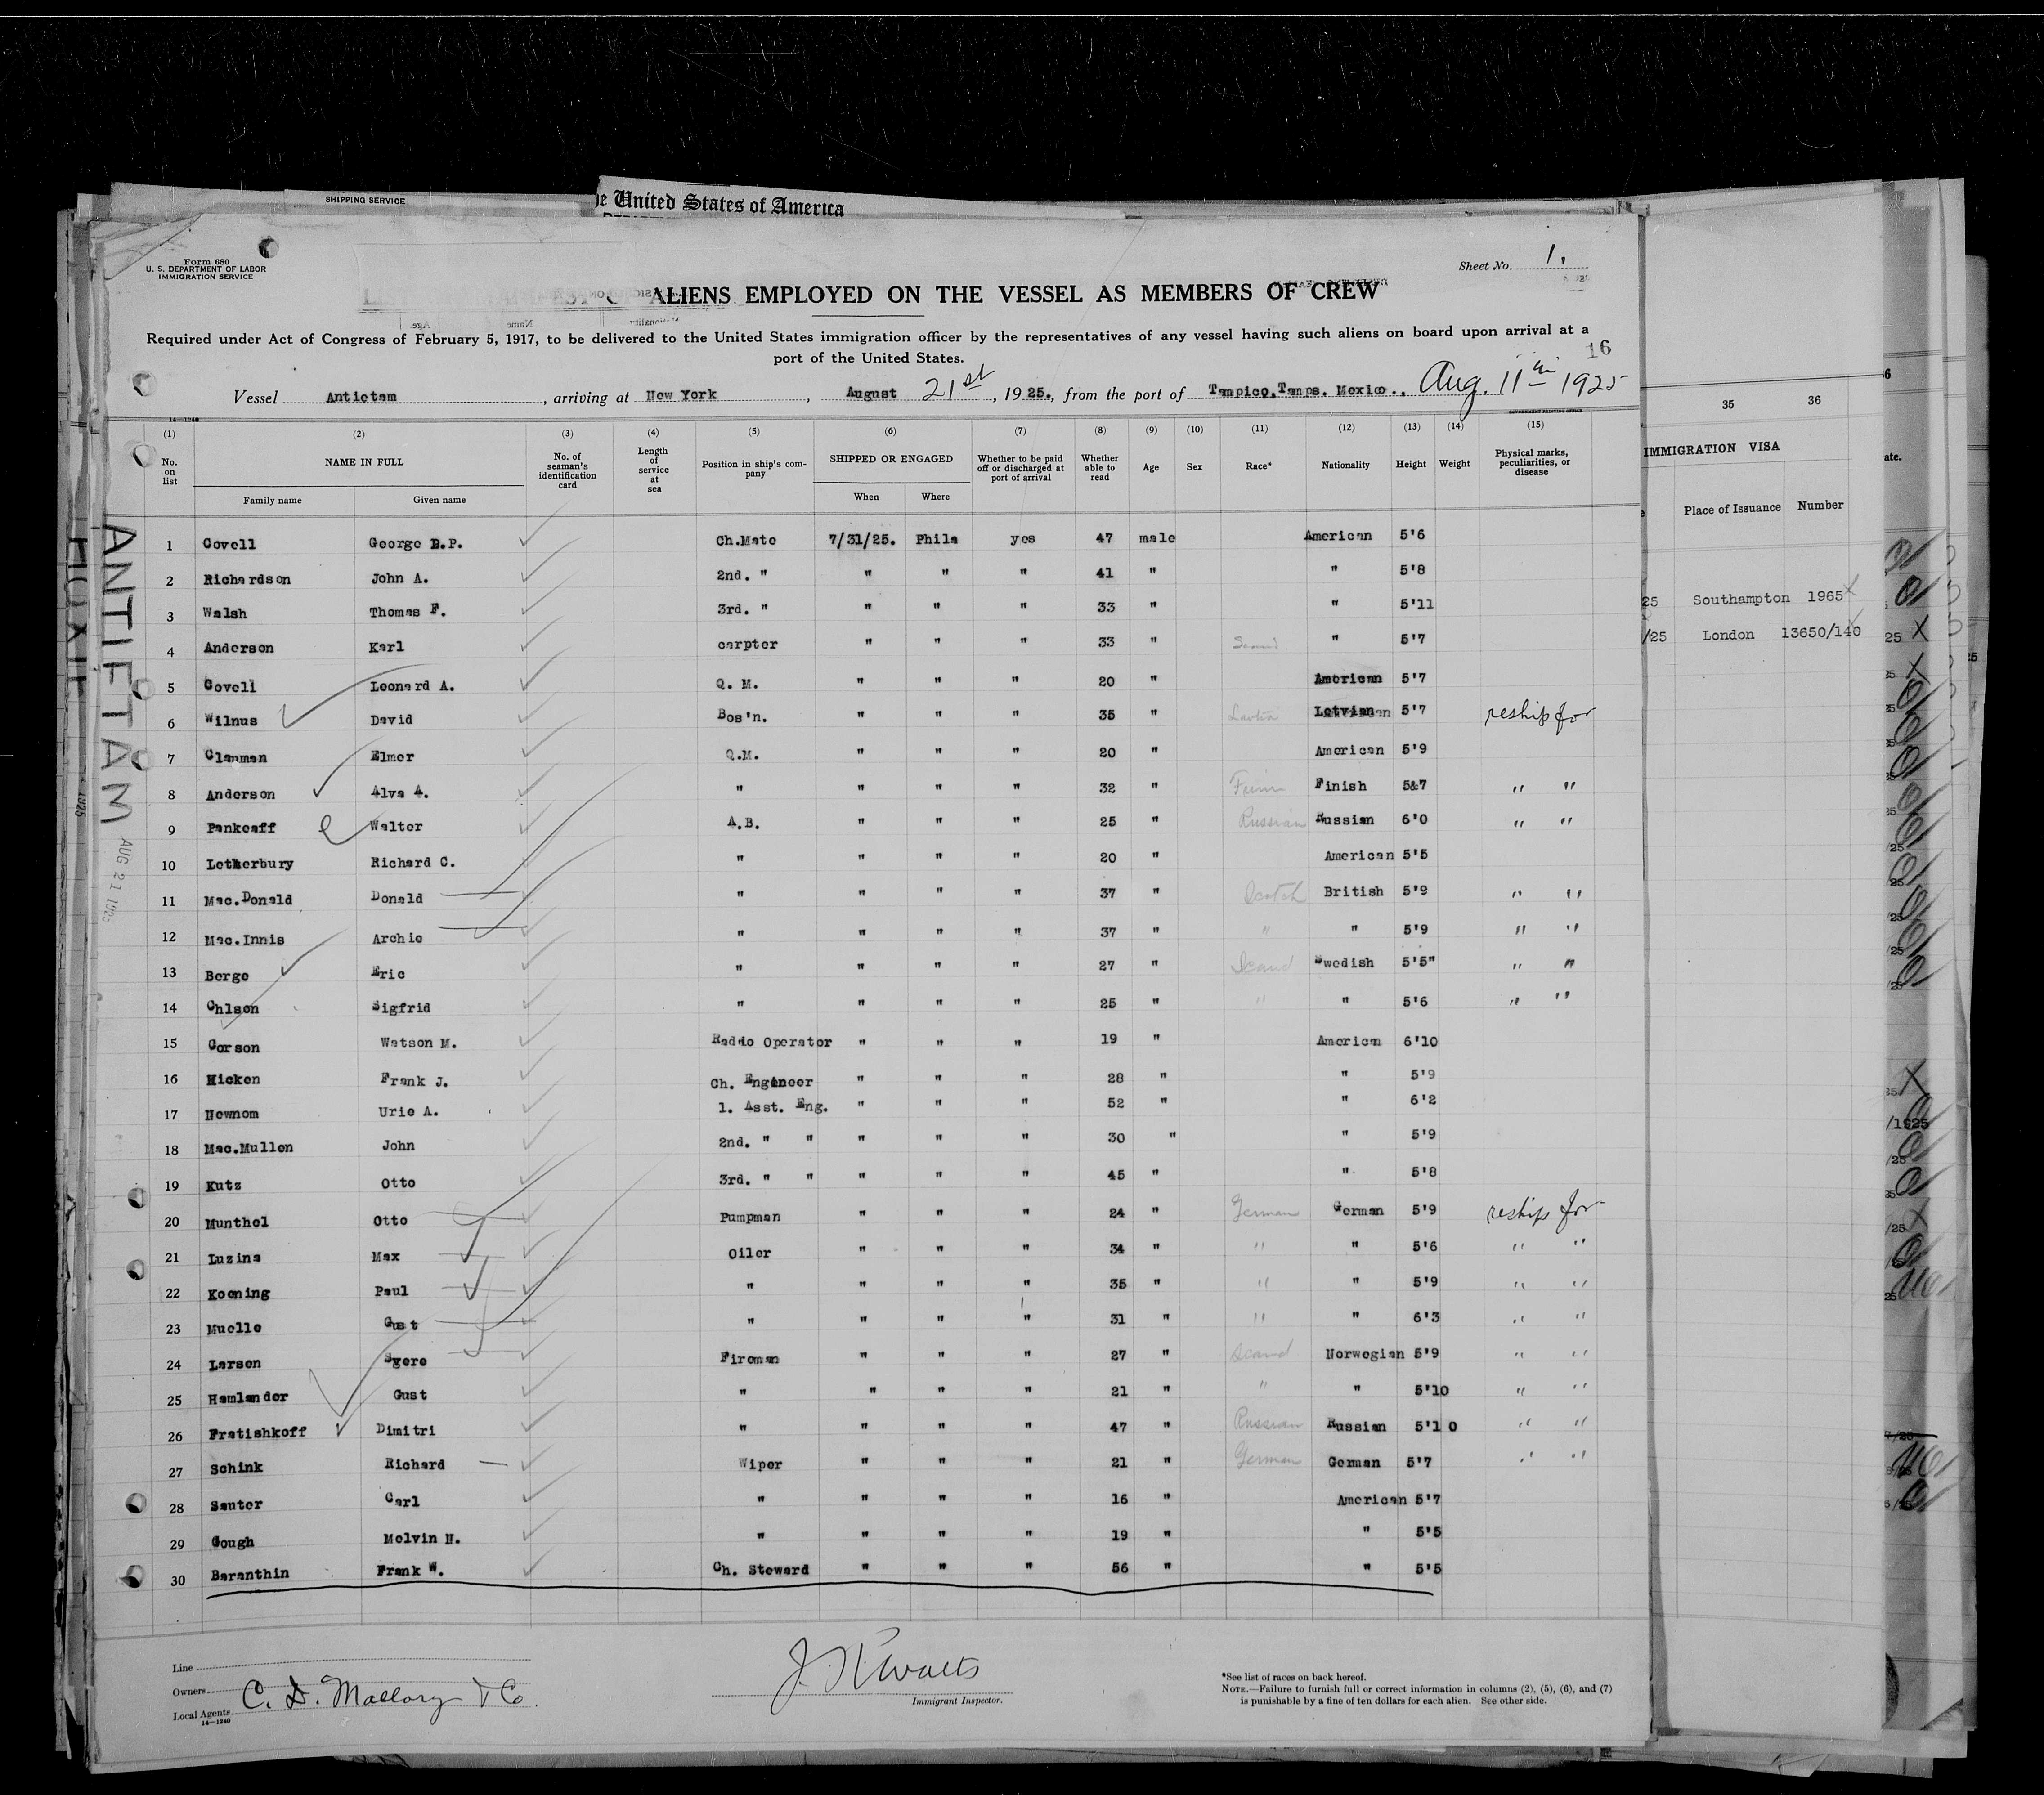 SHIPPING SERVICE
he United States of America
Form 680
U. S. DEPARTMENT OF LABOR
IMMIGRATION SERVICE
Sheet No. 1.
ALIENS EMPLOYED ON THE VESSEL AS MEMBERS OF CREW
Required under Act of Congress of February 5, 1917, to be delivered to the United States immigration officer by the representatives of any vessel having such aliens on board upon arrival at a
port of the United States.
16
Vessel Antietam, arriving at New York, August 21st, 1925., from the port of Tampico, Tamps. Mexico., Aug. 11th 1925
14—1240 GOVERNMENT PRINTING OFFICE
(1) (2) (3) (4) (5) (6) (7) (8) (9) (10) (11) (12) (13) (14) (15)
No. on list NAME IN FULL No. of seaman's identification card Length of service at sea Position in ship's company SHIPPED OR ENGAGED Whether to be paid off or discharged at port of arrival Whether able to read Age Sex Race* Nationality Height Weight Physical marks, peculiarities, or disease
Family name Given name When Where
1 Covell George B.P. Ch.Mate 7/31/25. Phila yes 47 male American 5'6
2 Richardson John A. 2nd. " " " " 41 " " 5'8
3 Walsh Thomas F. 3rd. " " " " 33 " " 5'11
4 Anderson Karl carpter " " " 33 " Scand " 5'7
5 Covell Leonard A. Q. M. " " " 20 " American 5'7
6 Wilnus David Bos'n. " " " 35 " Latvian 5'7 reship for
7 Clanman Elmer Q.M. " " " 20 " American 5'9
8 Anderson Alva A. " " " " 32 " Finn Finish 5&7 " "
9 Pankeaff Walter A.B. " " " 25 " Russian Russian 6'0 " "
10 Letherbury Richard C. " " " " 20 " American 5'5
11 Mac.Donald Donald " " " " 37 " Scotch British 5'9 " "
12 Mac.Innis Archie " " " " 37 " " " 5'9 " "
13 Berge Eric " " " " 27 " Scand Swedish 5'5" " "
14 Ohlson Sigfrid " " " " 25 " " " 5'6 " "
15 Corson Watson M. Raddo Operator " " " 19 " American 6'10
16 Hicken Frank J. Ch. Engineer " " " 28 " " 5'9
17 Newnom Urie A. 1. Asst. Eng. " " " 52 " " 6'2
18 Mac.Mullen John 2nd. " " " " " 30 " " 5'9
19 Kutz Otto 3rd. " " " " " 45 " " 5'8
20 Munthel Otto Pumpman " " " 24 " German German 5'9 reship for
21 Luzina Max Oiler " " " 34 " " " 5'6 " "
22 Koening Paul " " " " 35 " " " 5'9 " "
23 Muelle Gust " " " " 31 " " " 6'3 " "
24 Larsen Sgere Fireman " " " 27 " Scand Norwegian 5'9 " "
25 Hamlander Gust " " " " 21 " " " 5'10 " "
26 Fratishkoff Dimitri " " " " 47 " Russian Russian 5'10 " "
27 Schink Richard Wiper " " " 21 " German German 5'7 " "
28 Sauter Carl " " " " 16 " American 5'7
29 Gough Melvin H. " " " " 19 " " 5'5
30 Baranthin Frank W. Ch. Steward " " " 56 " " 5'5
ANTIETAM
AUG 21 1925
Line
Owners C. D. Mallory & Co.
Local Agents
14—1240
Immigrant Inspector.
*See list of races on back hereof.
NOTE.—Failure to furnish full or correct information in columns (2), (5), (6), and (7)
is punishable by a fine of ten dollars for each alien. See other side.
35 36
IMMIGRATION VISA
Place of Issuance Number
25 Southampton 1965
/25 London 13650/140